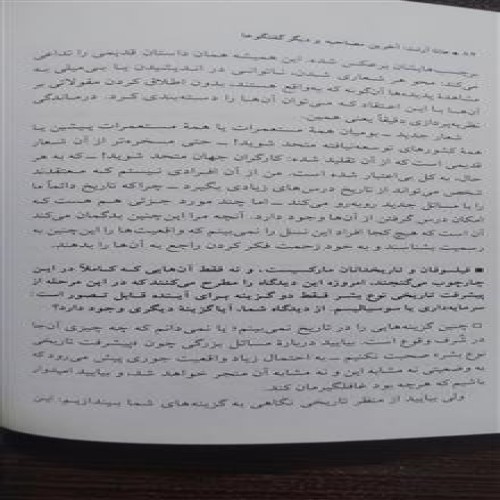 ۸۴ • هانا آرنت: آخرین مصاحبه و دیگر گفتگوها
برچسب‌هایشان برعکس شده. این همیشه همان داستان قدیمی را تداعی
می‌کند: محو هر شعاری شدن، ناتوانی در اندیشیدن یا بی‌میلی به
مشاهدهٔ پدیده‌ها آن‌گونه که به‌واقع هستند، بدون اطلاق کردن مقولاتی بر
آن‌ها با این اعتقاد که می‌توان آن‌ها را دسته‌بندی کرد. درماندگی
نظریه‌پردازی دقیقاً یعنی همین.
شعار جدید ـ بومیان همهٔ مستعمرات یا همهٔ مستعمرات پیشین یا
همهٔ کشورهای توسعه‌نیافته متحد شوید! ـ حتی مسخره‌تر از آن شعار
قدیمی است که از آن تقلید شده: کارگران جهان متحد شوید! ـ که به هر
حال، به کل بی‌اعتبار شده است. من از آن افرادی نیستم که معتقدند
شخص می‌تواند از تاریخ درس‌های زیادی بگیرد ـ چراکه تاریخ دائماً ما
را با مسائل جدید روبه‌رو می‌کند ـ اما چند مورد جزئی هم هست که
امکان درس گرفتن از آن‌ها وجود دارد. آنچه مرا این‌چنین بدگمان می‌کند
آن است که هیچ کجا افراد این نسل را نمی‌بینم که واقعیت‌ها را این‌چنین به
رسمیت بشناسند و به خود زحمت فکر کردن راجع به آن‌ها را بدهند.
■ فیلسوفان و تاریخدانان مارکسیست، و نه فقط آن‌هایی که کاملاً در این
چارچوب می‌گنجند، امروزه این دیدگاه را مطرح می‌کنند که در این مرحله از
پیشرفت تاریخی نوع بشر فقط دو گزینه برای آینده قابل تصور است:
سرمایه‌داری یا سوسیالیسم. از دیدگاه شما، آیا گزینهٔ دیگری وجود دارد؟
□ چنین گزینه‌هایی را در تاریخ نمی‌بینم؛ یا نمی‌دانم که چه چیزی آن‌جا
در شُرف وقوع است. بیایید دربارهٔ مسائل بزرگی چون «پیشرفت تاریخی
نوع بشر» صحبت نکنیم ـ به احتمال زیاد واقعیت جوری پیش می‌رود که
به وضعیتی نه مشابه این و نه مشابه آن منجر خواهد شد، و بیایید امیدوار
باشیم که هرچه بود غافلگیرمان کند.
ولی بیایید از منظر تاریخی نگاهی به گزینه‌های شما بیندازیم: این